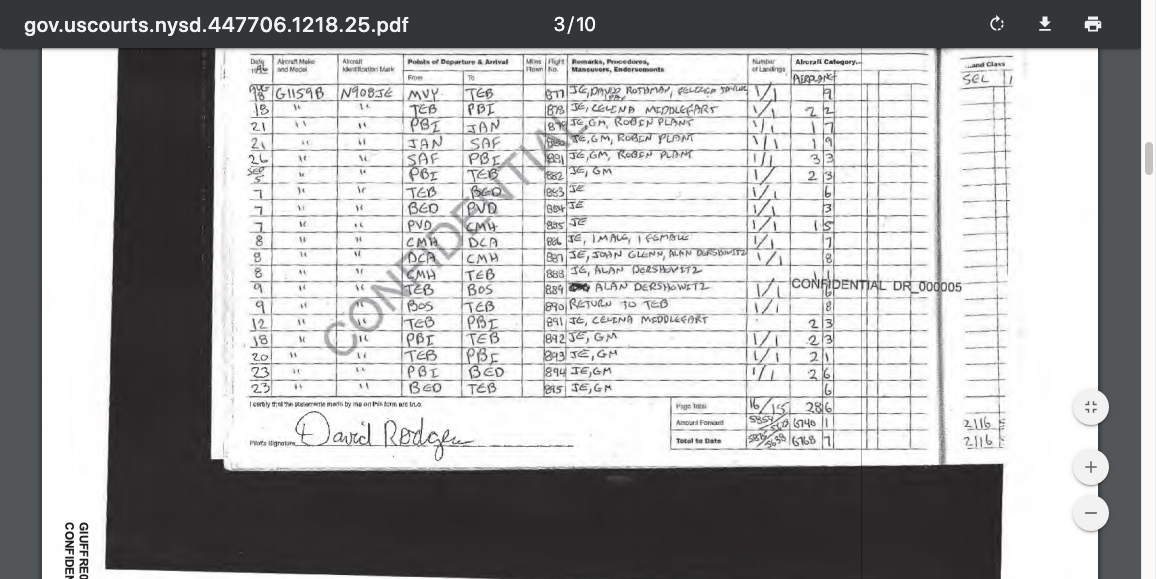 gov.uscourts.nysd.447706.1218.25.pdf 3/10
Date 1996 Aircraft Make and Model Aircraft Identification Mark Points of Departure & Arrival Miles Flown Flight No. Remarks, Procedures, Maneuvers, Endorsements Number of Landings Aircraft Category ...and Class
From To AIRPLANE SEL
AUG 18 G1159B N908JE MVY TEB 877 JE, DAVID ROTHMAN, 1/1 9
18 " " TEB PBI 878 JE, CELINA MIDDLEFART 1/1 2 2
21 " " PBI JAN 879 JE, GM, ROBIN PLANT 1/1 1 7
21 " " JAN SAF 880 JE, GM, ROBIN PLANT 1/1 1 9
26 " " SAF PBI 881 JE, GM, ROBIN PLANT 1/1 3 3
SEP 5 " " PBI TEB 882 JE, GM 2 3
7 " " TEB BED 883 JE 1/1 6
7 " " BED PVD 884 JE 1/1 3
7 " " PVD CMH 885 JE 1/1 1 5
8 " " CMH DCA 886 JE, 1 MALE, 1 FEMALE 1/1
8 " " DCA CMH 887 JE, JOHN GLENN, ALAN DERSHOWITZ 1/1 8
8 " " CMH TEB 888 JE, ALAN DERSHOWITZ
9 " " TEB BOS 889 ALAN DERSHOWITZ 1/1
CONFIDENTIAL DR_000005
9 " " BOS TEB 890 RETURN TO TEB 1/1 8
12 " " TEB PBI 891 JE, CELINA MIDDLEFART 2 3
18 " " PBI TEB 892 JE, GM 1/1 2 3
20 " " TEB PBI 893 JE, GM 1/1 2 1
23 " " PBI BED 894 JE, GM 1/1 2 6
23 " " BED TEB 895 JE, GM 6
I certify that the statements made by me on this form are true.
Page Total 16/15 28 6
Amount Forward 6740 1 2116
Pilot's Signature David Rodgers
Total to Date 6768 7 2116
CONFIDENTIAL
GIUFFRE0
CONFIDEN